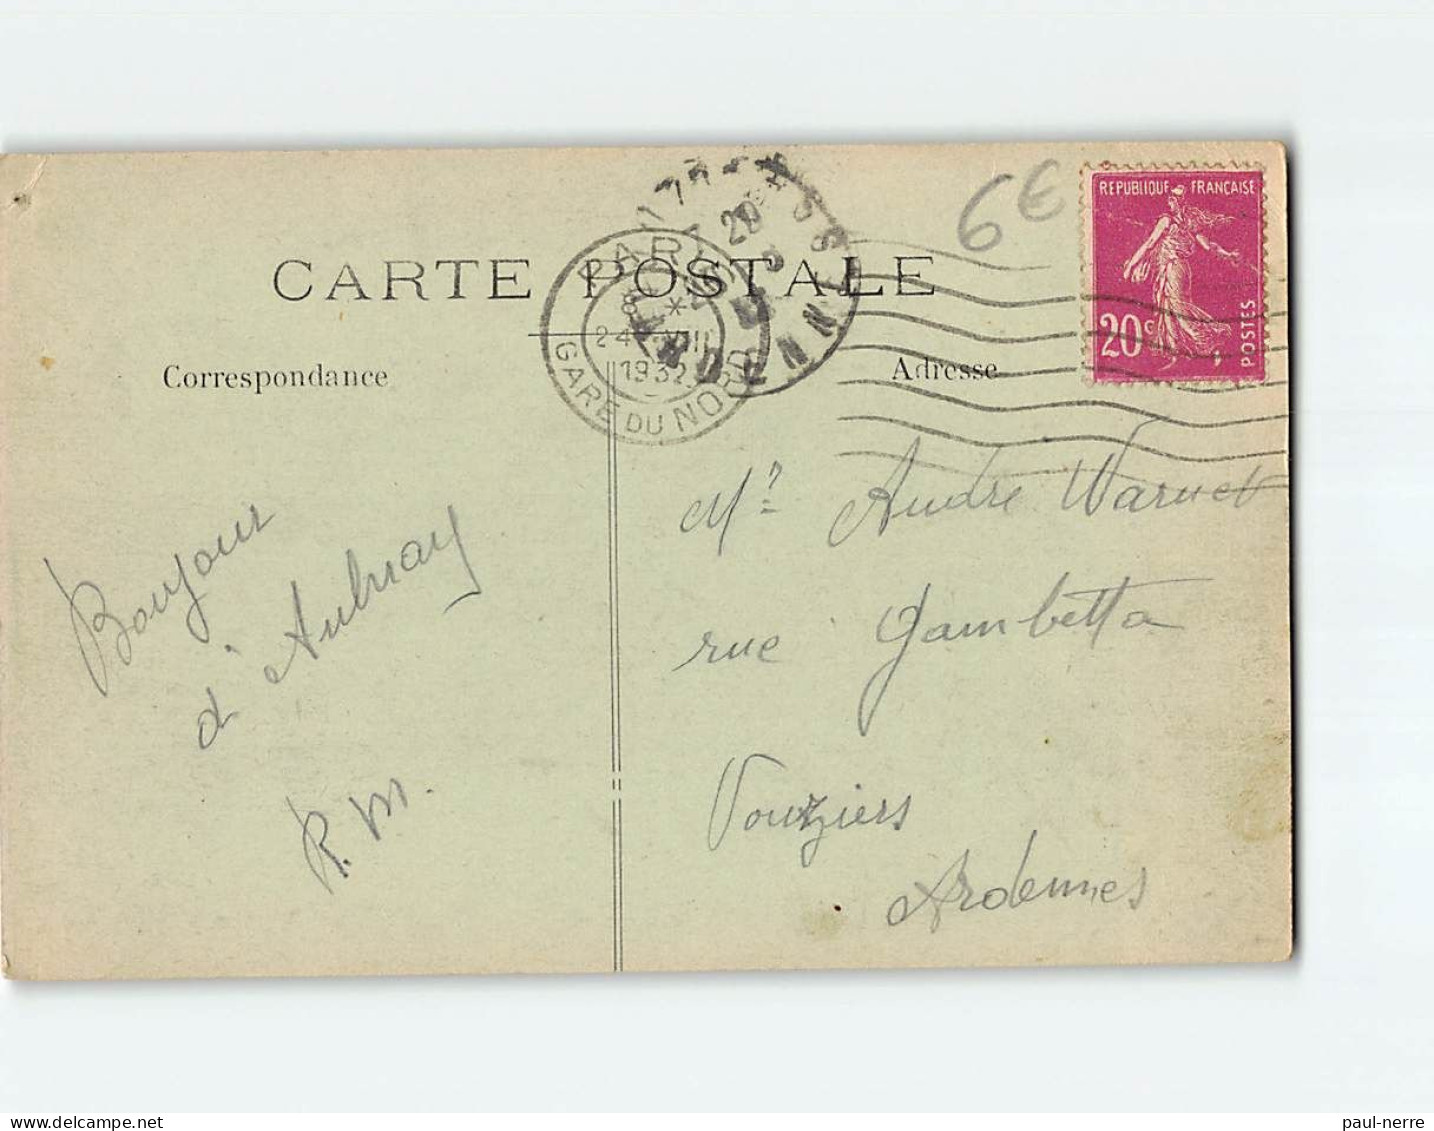 CARTE POSTALE
Correspondance
Adresse
6€
REPUBLIQUE FRANÇAISE
20c
POSTES
PARIS
8 *
24 VIII
1932
GARE DU NORD
Bonjour
d'Aulnay
R. M.
Mr André Warnet
rue Gambetta
Vouziers
Ardennes
paul-nerre